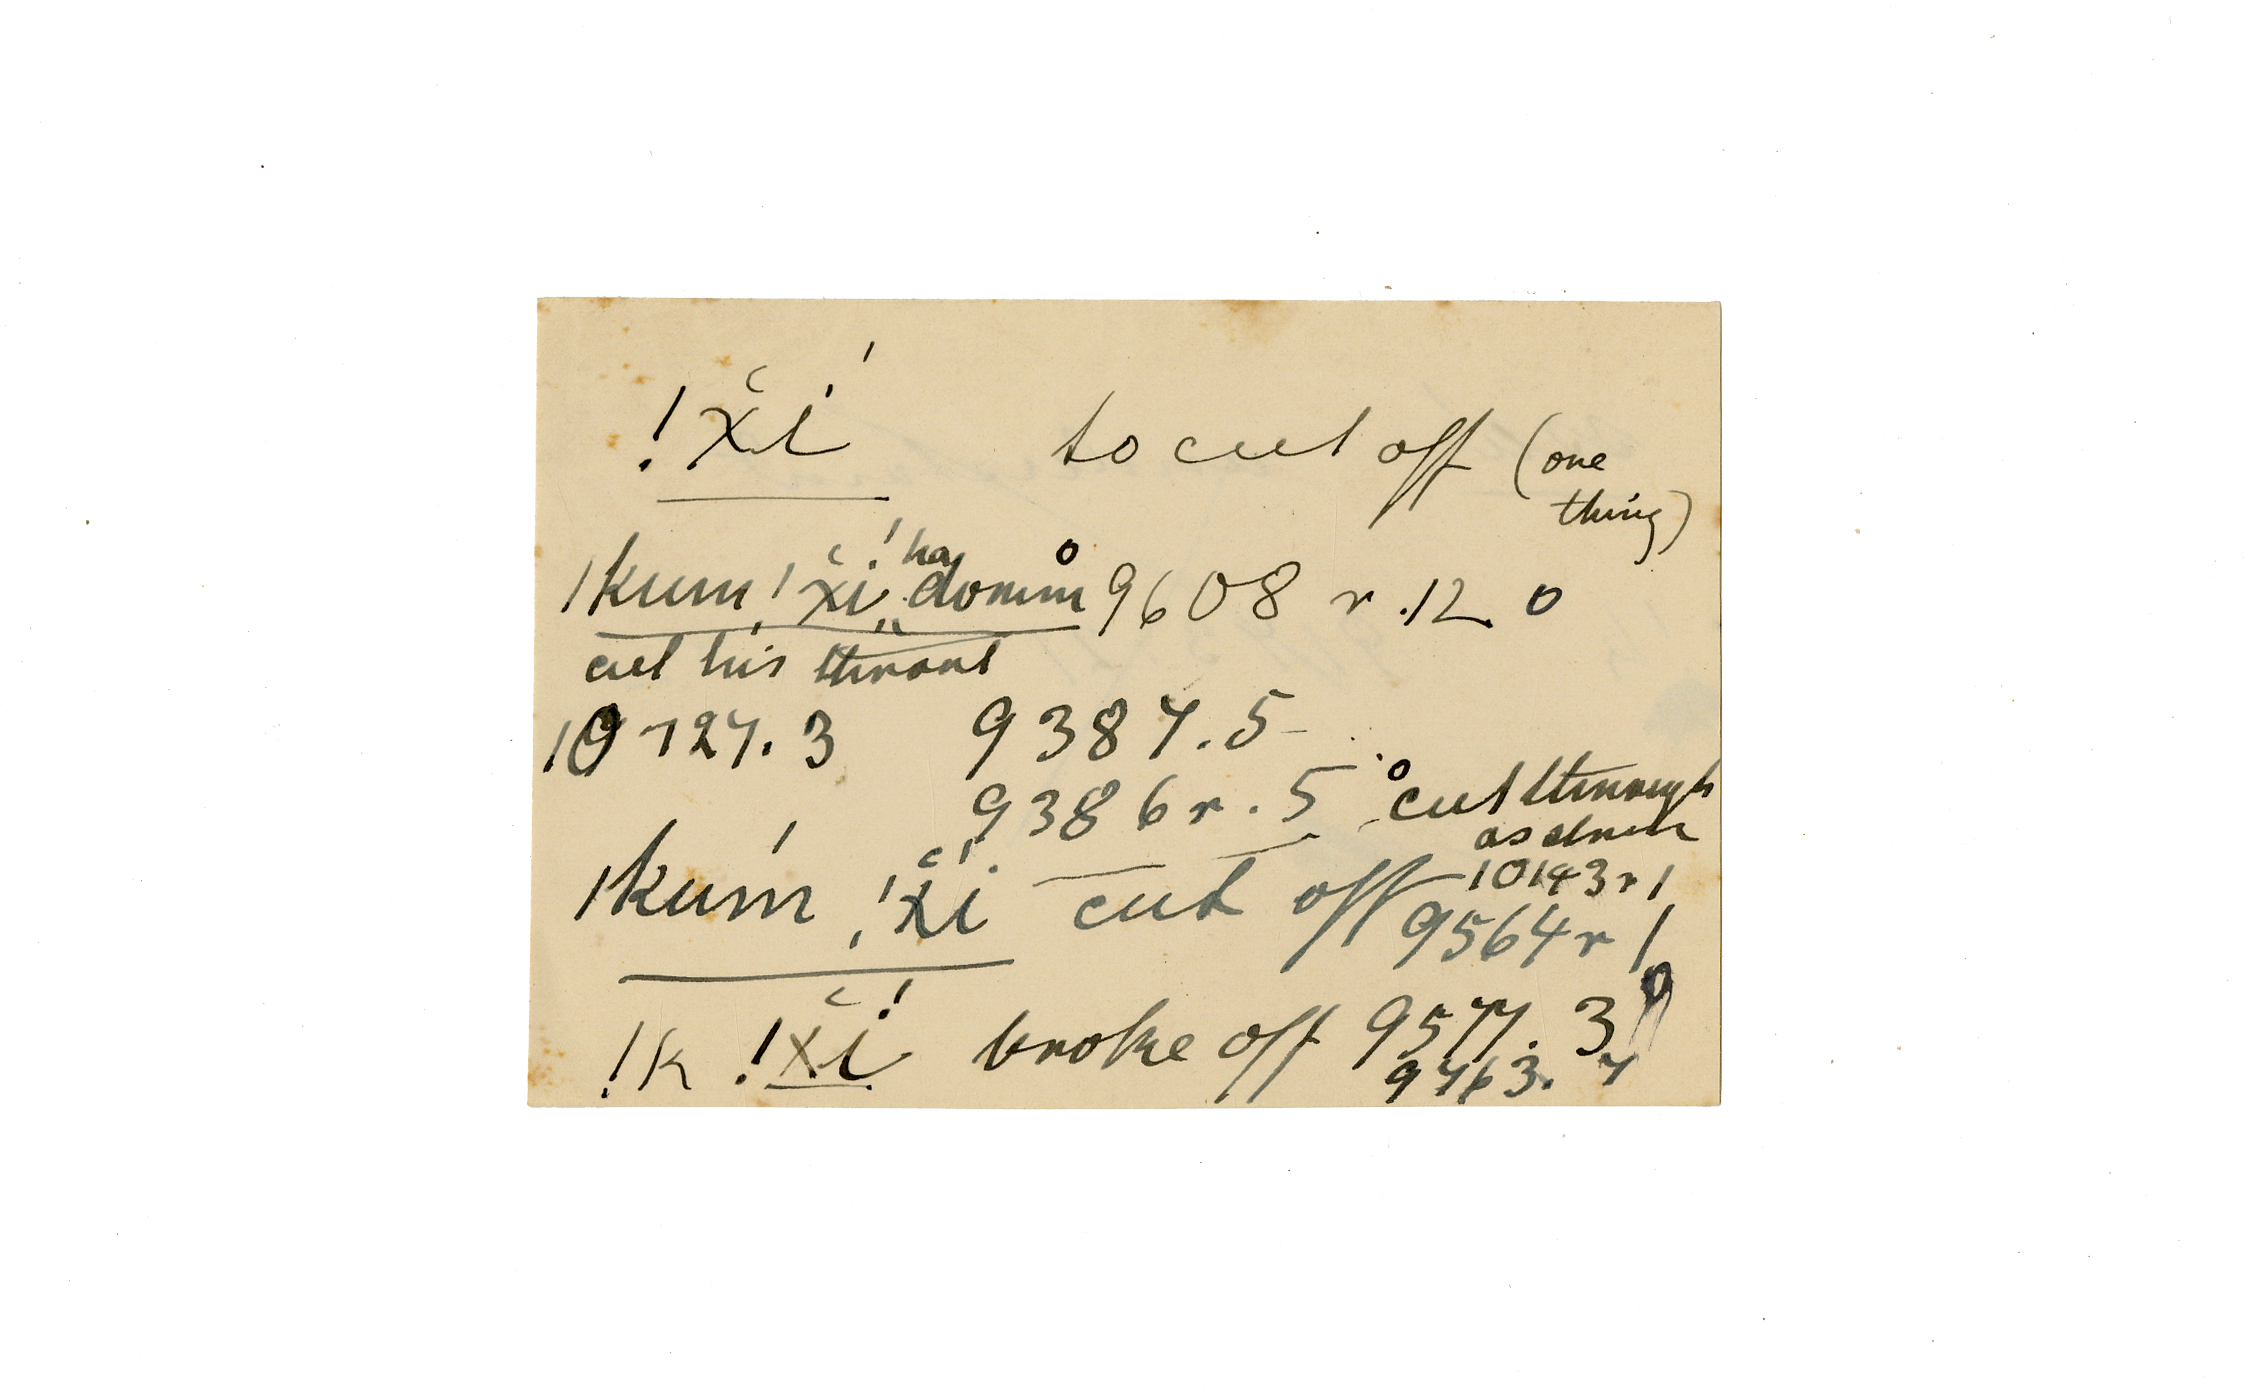 !x̌i̍ to cut off (one
thing)
|kum !x̌i ha domm 9608 r. 12 0
cut his throat
10727.3 9387.5
9386r.5 cut through
10143r1
|kum !x̌i cut off 9564r1
!k !x̌i broke off 9577.3
9463.7